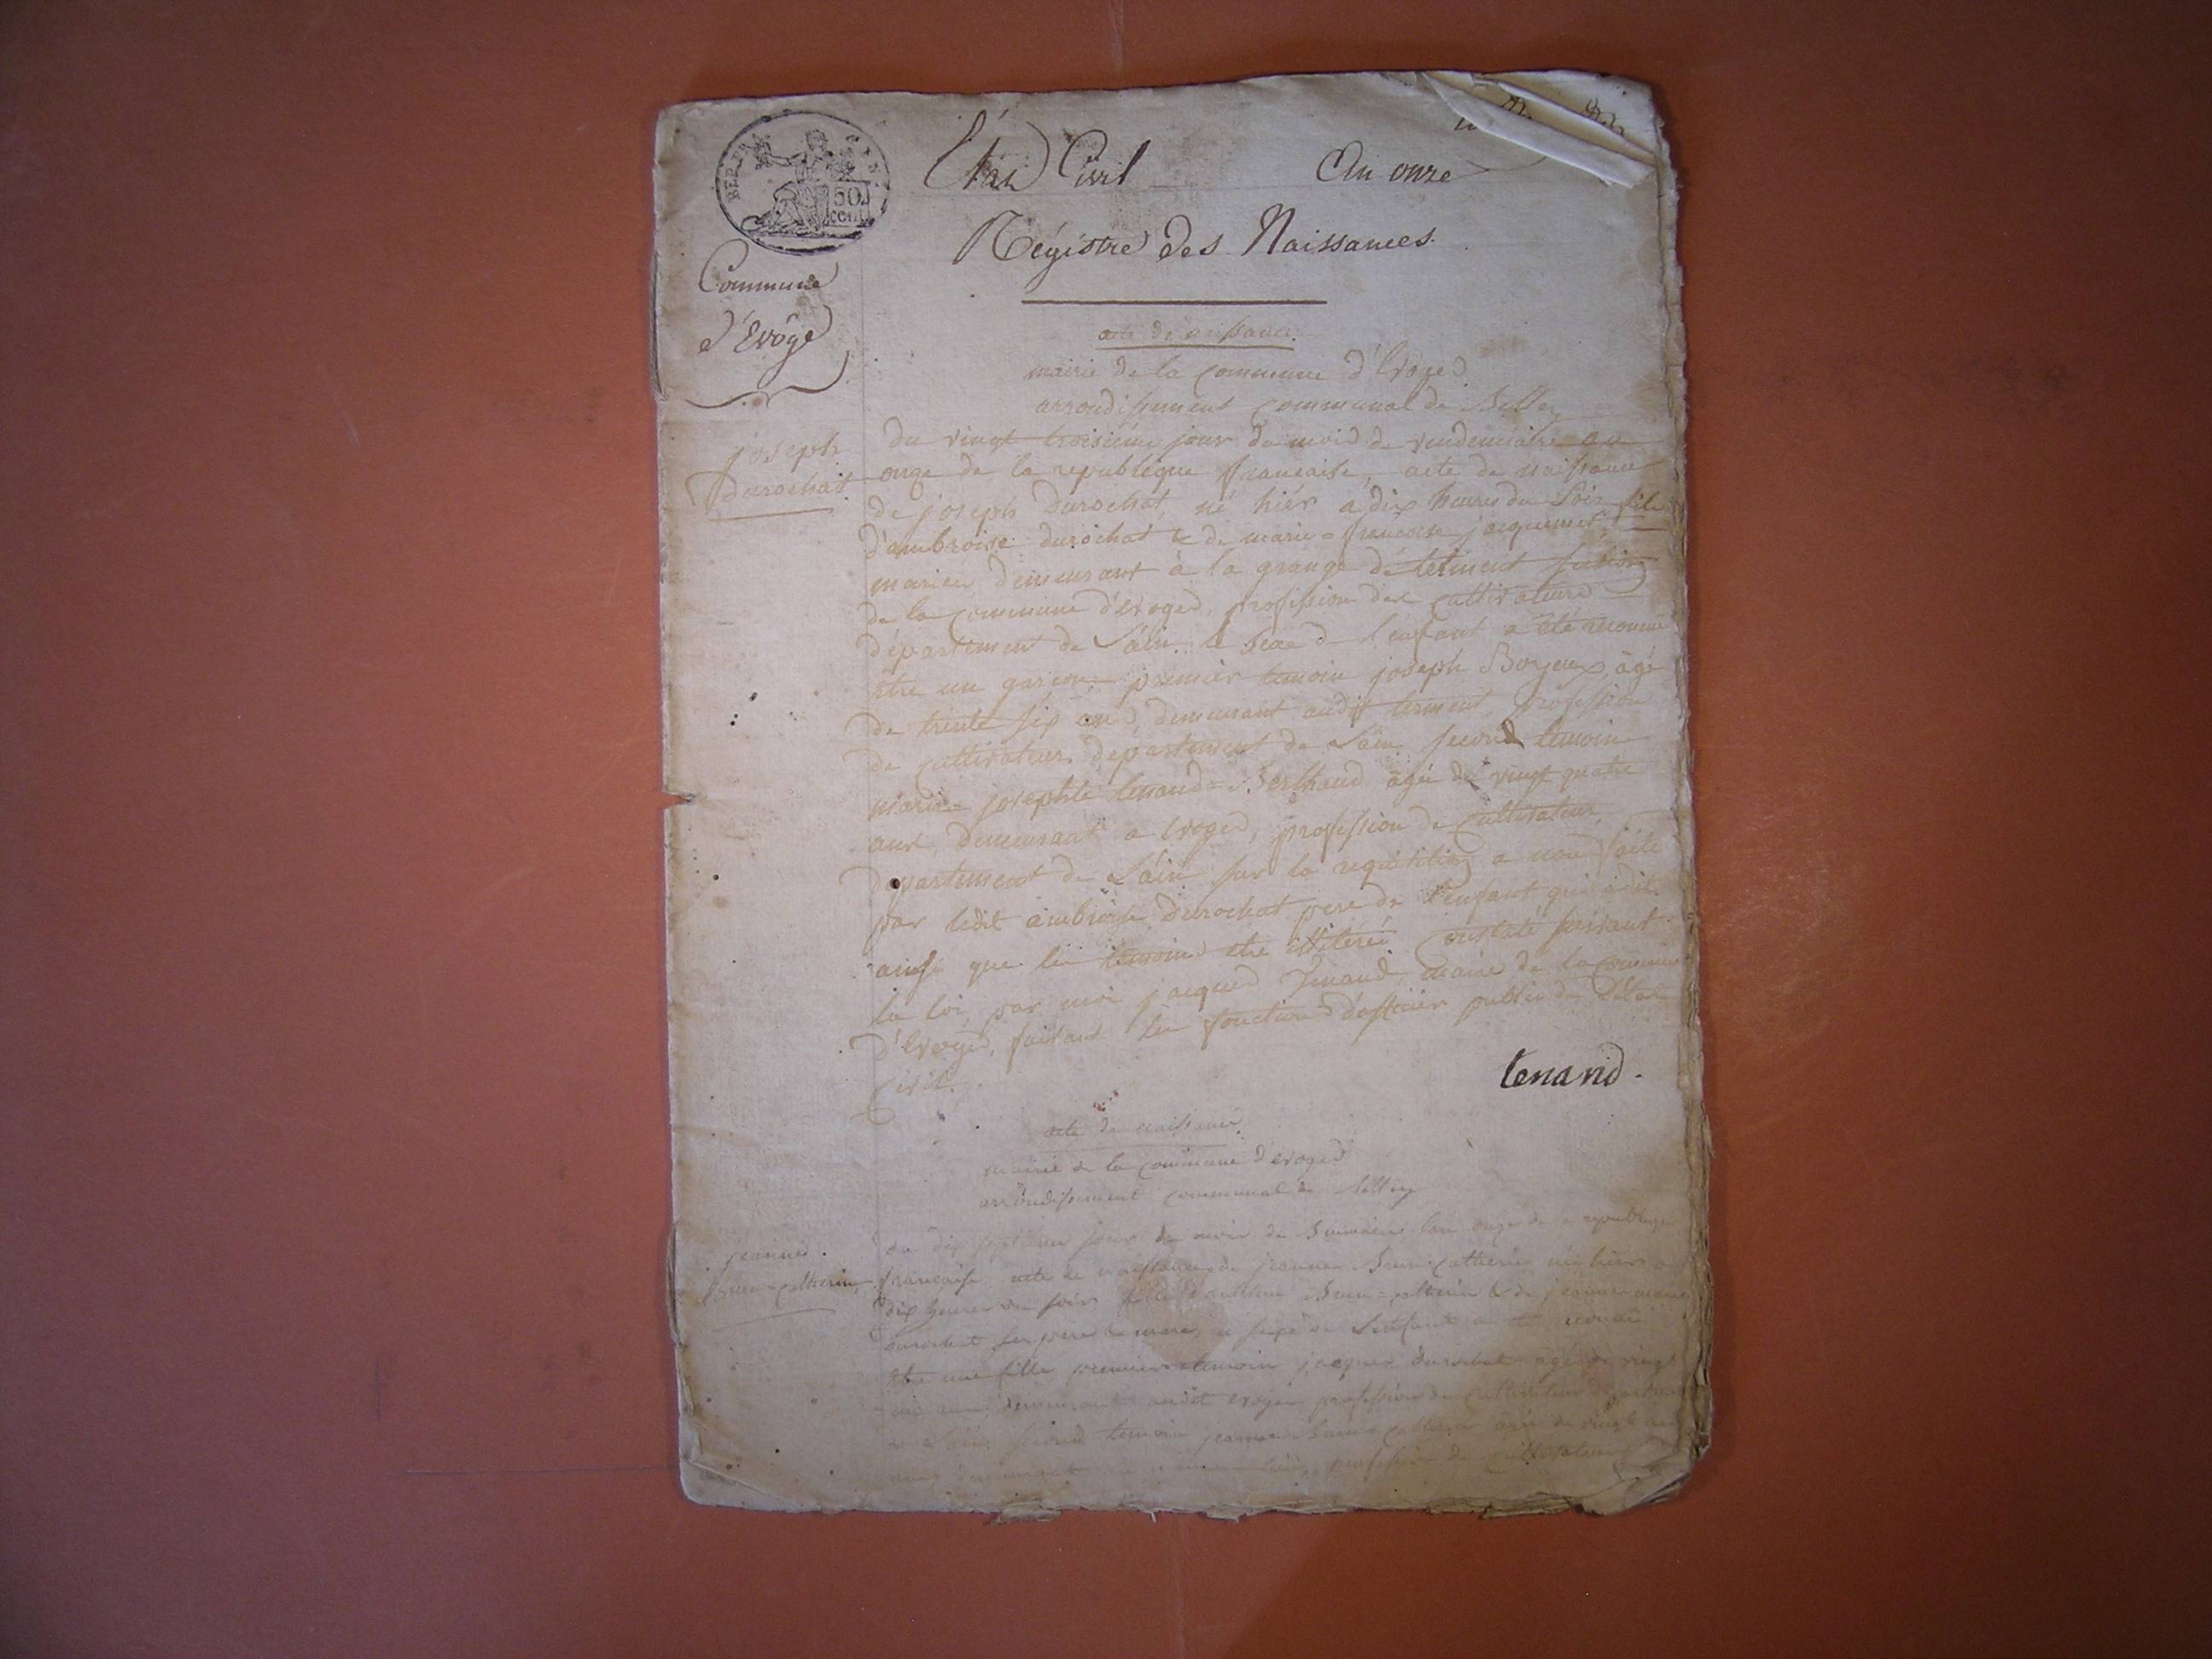 REP. FRA
50
cent
Etat Civil An onze
Régistre des Naissances.
Commune
d'Evôge
acte de naissance.
mairie de la commune d'Evoges
arrondissement communal de Belley
joseph
Durochat
du vingt troisieme jour du mois de vendemiaire an
onze de la republique francaise, acte de naissance
de joseph Durochat, né hiér a dix heures du soir fils
d'ambroise durochat & de marie-francoise jacquemet
mariés demeurant à la grange de
de la commune d'evoges, profession de cultivateurs
département de L'ain. le sexe de l'enfant a été reconnu
etre un garcon. premiér temoin joseph Boyeux, âgé
de trente six ans, demeurant audit profession
de cultivateur, département de L'ain, second temoin
marie-josephte tenand-Berthaud âgée de vingt quatre
ans, demeurant a evoges, profession de cultivateur,
département de L'ain sur la requisition a nous faite
par ledit ambroise durochat pere de l'enfant qui a dit
ainsi que les temoins etre illiterés constaté suivant
la loi, par moi jacques Tenand, maire de la commune
d'evoges, faisant les fonctions d'officiér public de l'état
Civil.
tenand.
acte de naissance.
mairie de la commune d'evoges
arrondissement communal de Belley
jeanne
Brun-catherin
du dix septieme jour du mois de Brumaire l'an onze de la republique
francaise acte de naissance de jeanne Brun-catherin née hier a
dix heures du soir fille d'anthelme Brun-catherin & de jeanne marie
durochat ses pere & mere, le sexe de l'enfant a été reconnu
etre une fille premier temoin jacques durochat âgé de vingt
ans, demeurant audit evoges profession de cultivateur
de L'ain, second temoin jeanne Brun-catherin âgée de vingt
ans demeurant profession de cultivateur